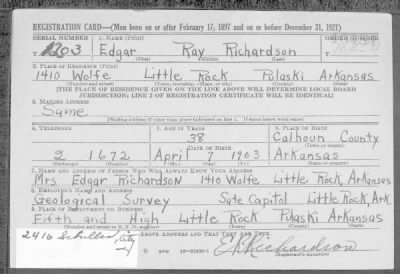 REGISTRATION CARD—(Men born on or after February 17, 1897 and on or before December 31, 1921)
SERIAL NUMBER 1. NAME (Print) ORDER NUMBER
T 1203 Edgar Ray Richardson
(First) (Middle) (Last)
2. PLACE OF RESIDENCE (Print)
1410 Wolfe Little Rock Pulaski Arkansas
(Number and street) (Town, township, village, or city) (County) (State)
[THE PLACE OF RESIDENCE GIVEN ON THE LINE ABOVE WILL DETERMINE LOCAL BOARD
JURISDICTION; LINE 2 OF REGISTRATION CERTIFICATE WILL BE IDENTICAL]
3. MAILING ADDRESS
Same
[Mailing address if other than place indicated on line 2. If same insert word same]
4. TELEPHONE 5. AGE IN YEARS 6. PLACE OF BIRTH
38 Calhoun County
DATE OF BIRTH (Town or county)
2 1672 April 1903 Arkansas
(Exchange) (Number) (Mo.) (Day) (Yr.) (State or country)
7. NAME AND ADDRESS OF PERSON WHO WILL ALWAYS KNOW YOUR ADDRESS
Mrs Edgar Richardson 1410 Wolfe Little Rock, Arkansas
8. EMPLOYER'S NAME AND ADDRESS
Geological Survey State Capitol Little Rock, Ark
9. PLACE OF EMPLOYMENT OR BUSINESS
Fifth and High Little Rock Pulaski Arkansas
(Number and street or R. F. D. number) (Town) (County) (State)
2416 City
ABOVE ANSWERS AND THAT THEY ARE TRUE.
GPO
E R Richardson
(Registrant's signature)